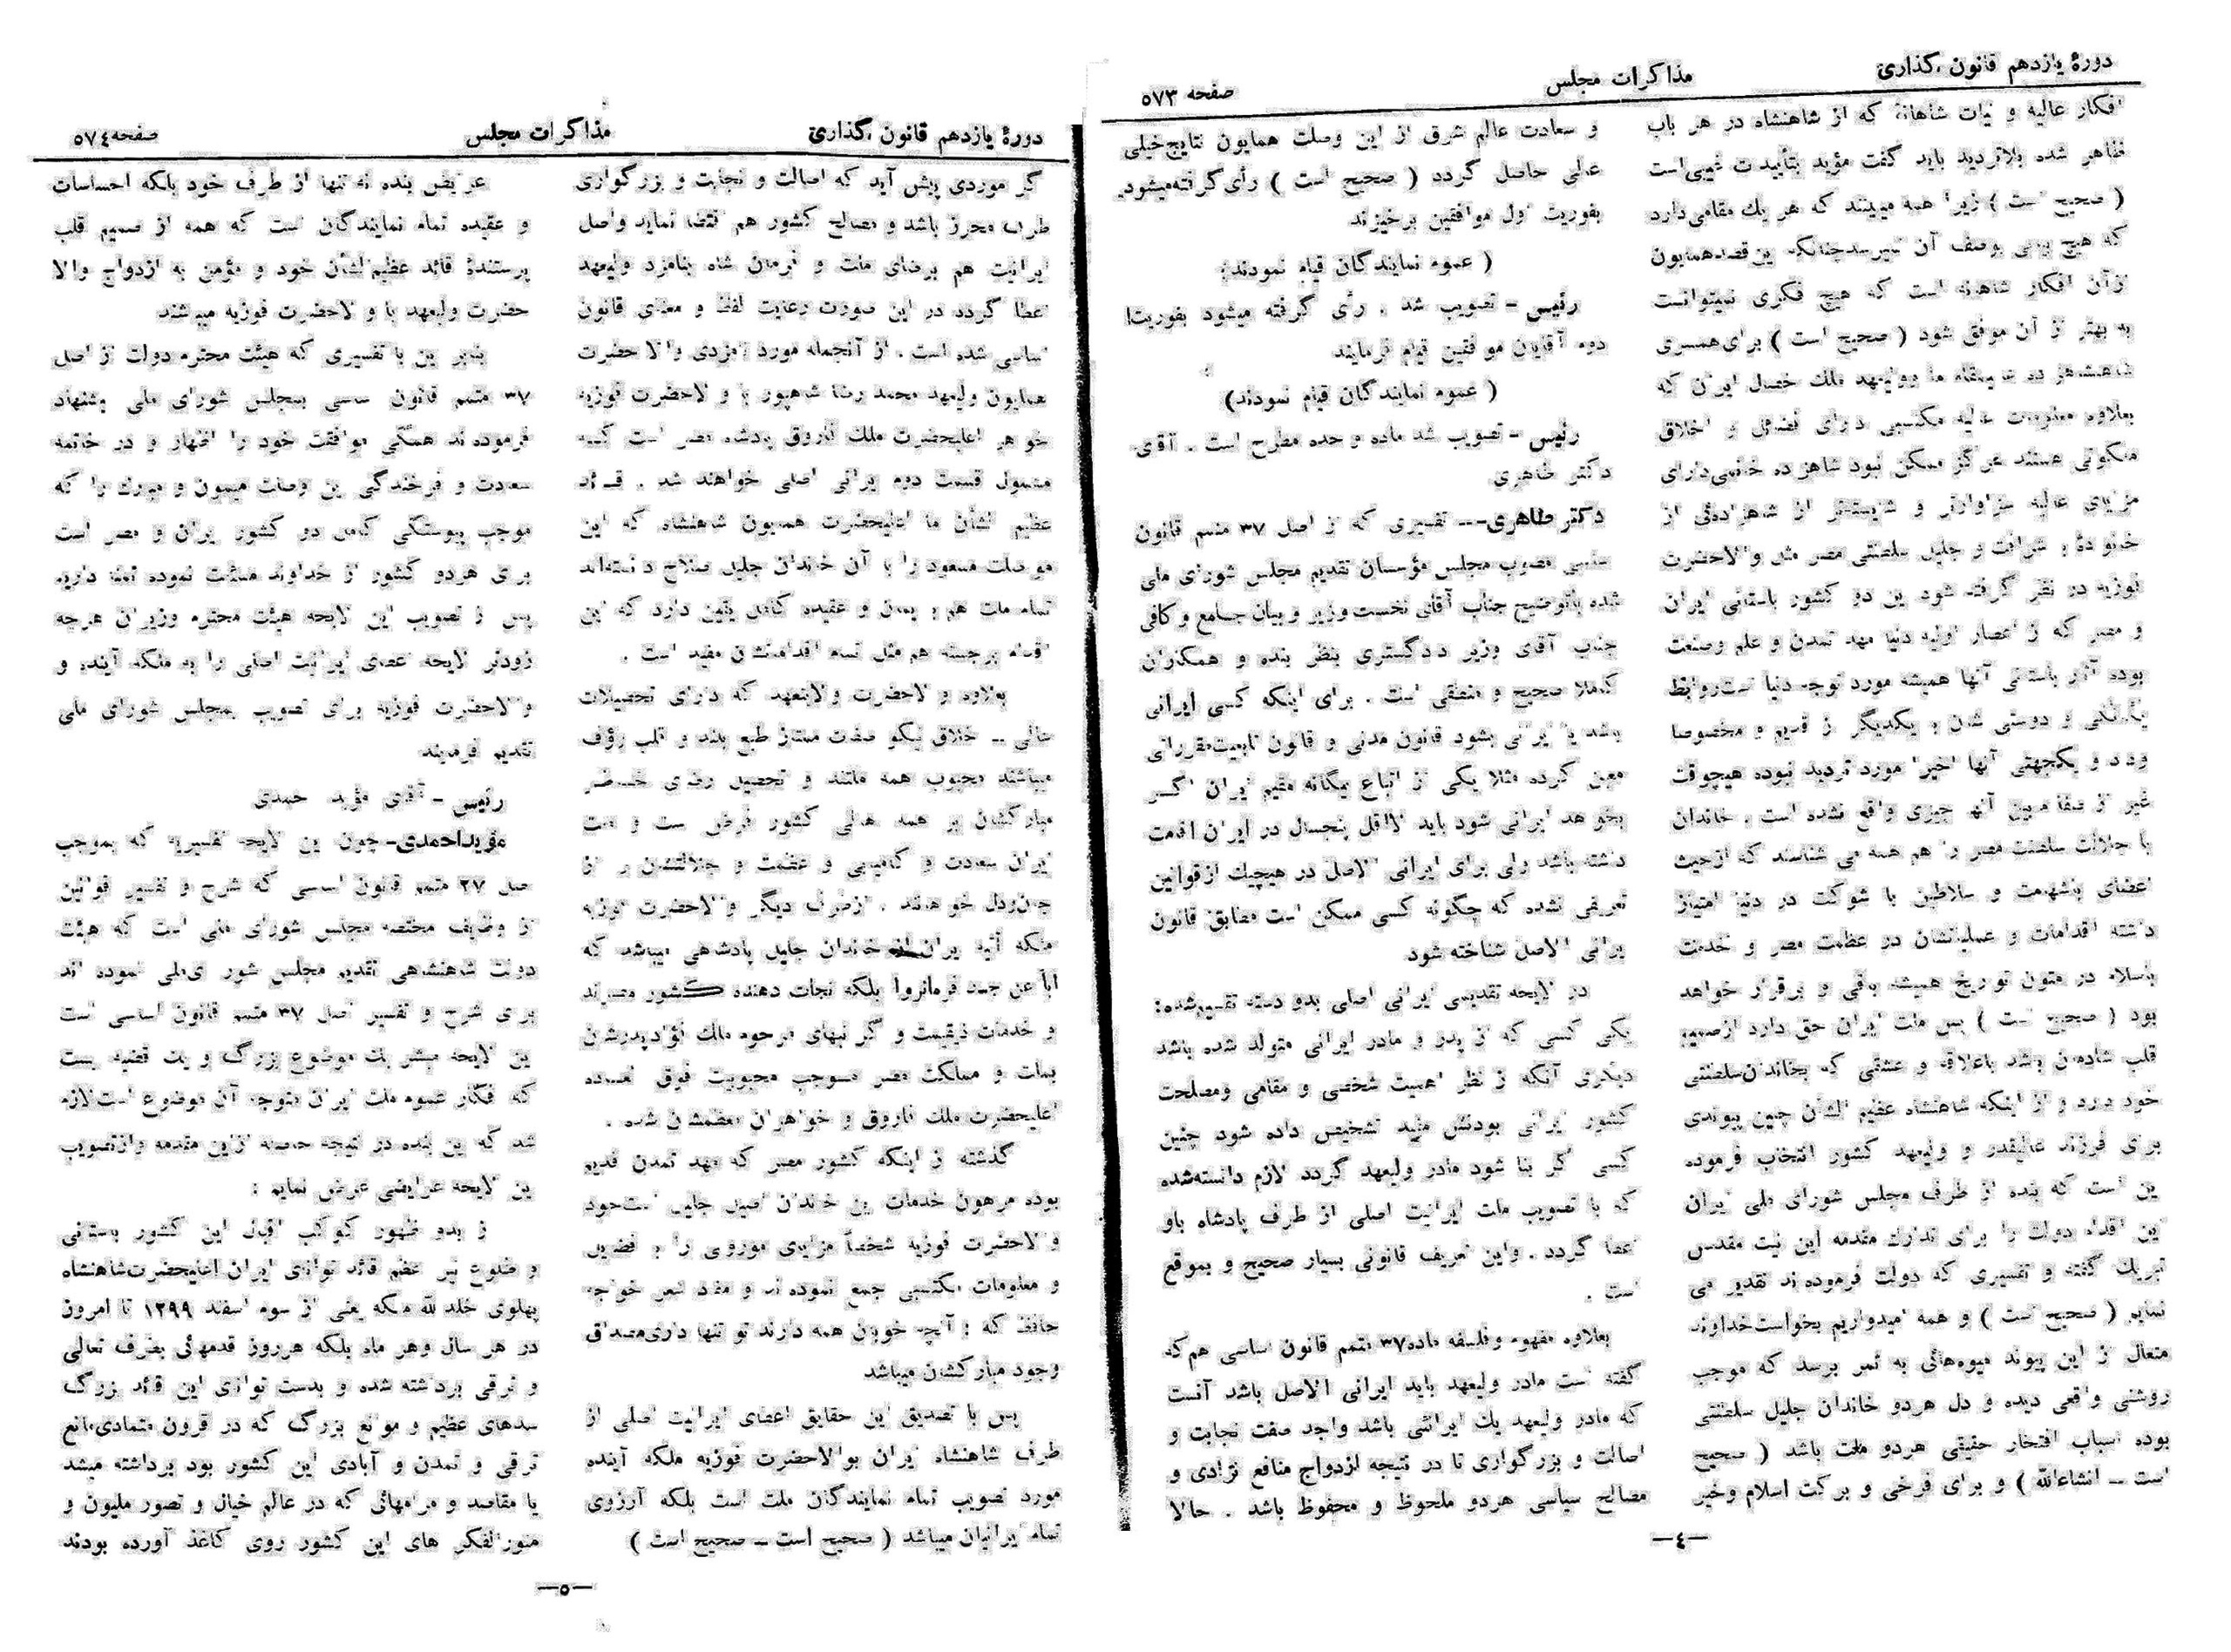 دورهٔ یازدهم قانون گذاری
مذاکرات مجلس
صفحه ۵۷۳
افکار عالیه و نیات شاهانه که از شاهنشاه در هر باب
ظاهر شده بلاتردید باید گفت مؤید بتأییدات غیبی است
( صحیح است ) زیرا همه میبینند که هر یك مقامی دارد
که هیچ بوصف آن نمیرسد چنانکه این قصد همایون
از آن افکار شاهانه است که هیچ فکری نمیتوانست
به بهتر از آن موفق شود ( صحیح است ) برای همسری
ما وولیعهد ملك خصال ایران که
بعلاوه معلومات عالیه مکتسبی دارای فضائل و اخلاق
ملکوتی هستند هرگز ممکن نبود شاهزاده خانمی دارای
مزایای عالیه سزاوارتر و شایسته‌تر از شاهزاده‌ئی از
خانوادهٔ با شرافت و جلیل سلطنتی مصر مثل والاحضرت
فوزیه در نظر گرفته شود این دو کشور باستانی ایران
و مصر که از اعصار اولیه دنیا مهد تمدن و علم وصنعت
بوده آثار باستانی آنها همیشه مورد توجه دنیا است روابط
یگانگی و دوستی شان با یکدیگر از قدیم و مخصوصا
وداد و یکجهتی آنها اخیرا مورد تردید نبوده هیچوقت
غیر از صفا مابین آنها چیزی واقع نشده است . خاندان
با جلالت سلطنت مصر را هم همه می شناسند که ازحیث
اعضای باشهامت و سلاطین با شوکت در دنیا امتیاز
داشته اقدامات و عملیاتشان در عظمت مصر و خدمت
باسلام در متون تواریخ همیشه باقی و برقرار خواهد
بود ( صحیح است ) پس ملت ایران حق دارد ازصمیم
قلب شادمان باشد باعلاقه و عشقی که بخاندان سلطنتی
خود دارد و از اینکه شاهنشاه عظیم الشأن چنین پیوندی
برای فرزند عالیقدر و ولیعهد کشور انتخاب فرموده
این است که بنده از طرف مجلس شورای ملی ایران
این اقدام دولت را برای تدارك مقدمه این نیت مقدس
تبریك گفته و تفسیری که دولت فرموده اند تقدیر می
نمایم ( صحیح است ) و همه امیدواریم بخواست خداوند
متعال از این پیوند میوه‌هائی به ثمر برسد که موجب
روشنی واقعی دیده و دل هردو خاندان جلیل سلطنتی
بوده اسباب افتخار حقیقی هردو ملت باشد ( صحیح
است ــ انشاءالله ) و برای فرخی و برکت اسلام وخیر
و سعادت عالم شرق از این وصلت همایون نتایج خیلی
عالی حاصل گردد ( صحیح است ) رأی گرفته میشود
بفوریت اول موافقین برخیزند
( عموم نمایندگان قیام نمودند)
رئیس - تصویب شد . رأی گرفته میشود بفوریت
دوم آقایان موافقین قیام فرمایند
( عموم نمایندگان قیام نمودند)
رئیس - تصویب شد ماده وحده مطرح است . آقای
دکتر طاهری
دکتر طاهری-- تفسیری که از اصل ۳۷ متمم قانون
اساسی مصوب مجلس مؤسسان تقدیم مجلس شورای ملی
شده باتوضیح جناب آقای نخست وزیر و بیان جامع و کافی
جناب آقای وزیر دادگستری بنظر بنده و همکاران
کاملا صحیح و منطقی است . برای اینکه کسی ایرانی
باشد یا ایرانی بشود قانون مدنی و قانون تابعیت مقرراتی
معین کرده مثلا یکی از اتباع بیگانه مقیم ایران اگر
بخواهد ایرانی شود باید لااقل پنجسال در ایران اقامت
داشته باشد ولی برای ایرانی الاصل در هیچیك از قوانین
تعریفی نشده که چگونه کسی ممکن است مطابق قانون
ایرانی الاصل شناخته شود
در لایحه تقدیمی ایرانی اصلی بدو دسته تقسیم شده:
یکی کسی که از پدر و مادر ایرانی متولد شده باشد
دیگری آنکه از نظر اهمیت شخصی و مقامی ومصلحت
کشور ایرانی بودنش مفید تشخیص داده شود چنین
کسی اگر بنا شود مادر ولیعهد گردد لازم دانسته شده
که با تصویب ملت ایرانیت اصلی از طرف پادشاه باو
اعطا گردد . واین تعریف قانونی بسیار صحیح و بموقع
است .
بعلاوه مفهوم وفلسفه ماده ۳۷ متمم قانون اساسی هم که
گفته است مادر ولیعهد باید ایرانی الاصل باشد آنست
که مادر ولیعهد یك ایرانی باشد واجد صفت نجابت و
اصالت و بزرگواری تا در نتیجه ازدواج منافع نژادی و
مصالح سیاسی هردو ملحوظ و محفوظ باشد . حالا
—٤—
دورهٔ یازدهم قانون گذاری
مذاکرات مجلس
صفحه ۵۷٤
گر موردی پیش آید که اصالت و نجابت و بزرگواری
طرف محرز باشد و مصالح کشور هم اقتضا نماید واصل
ایرانیت هم برضای ملت و فرمان شاه بنامزد ولیعهد
اعطا گردد در این صورت رعایت لفظ و معنای قانون
اساسی شده است . از آنجمله مورد نامزدی والا حضرت
همایون ولیعهد محمد رضا شاهپور با والاحضرت فوزیه
خواهر اعلیحضرت ملك فاروق پادشاه مصر است که
مشمول قسمت دوم ایرانی اصلی خواهند شد . قائد
عظیم الشأن ما اعلیحضرت همایون شاهنشاه که این
مواصلت مسعود را با آن خاندان جلیل صلاح دانسته‌اند
تمام ملت هم با ایمان و عقیده کامل یقین دارد که این
اقدام برجسته هم مثل تمام اقداماتشان مفید است .
بعلاوه والاحضرت ولایتعهد که دارای تحصیلات
عالی ــ اخلاق نیکو صفات ممتاز طبع بلند و قلب رؤف
میباشند محبوب همه ملتند و تحصیل رضای خاطر
مبارکشان بر همه اهالی کشور فرض است و ملت
ایران سعادت و کامیابی و عظمت و جلالتشان را از
جان‌ودل خواهانند . ازطرف دیگر والاحضرت فوزیه
ملکه آتیه ایران از خاندان جلیل پادشاهی میباشد که
اباً عن جد فرمانروا بلکه نجات دهنده کشور مصرند
و خدمات ذیقیمت و گرانبهای مرحوم ملك فؤاد پدرشان
بملت و مملکت مصر موجب محبوبیت فوق العاده
اعلیحضرت ملك فاروق و خواهران معظمشان شده .
گذشته از اینکه کشور مصر که مهد تمدن قدیم
بوده مرهون خدمات این خاندان اصیل جلیل است خود
والاحضرت فوزیه شخصاً مزایای موروثی را با فضایل
و معلومات مکتسبی جمع نموده اند و مفاد شعر خواجه
حافظ که : آنچه خوبان همه دارند تو تنها داری مصداق
وجود مبارکشان میباشد
پس با تصدیق این حقایق اعطای ایرانیت اصلی از
طرف شاهنشاه ایران بوالاحضرت فوزیه ملکه آینده
مورد تصویب تمام نمایندگان ملت است بلکه آرزوی
تمام ایرانیان میباشد ( صحیح است ــ صحیح است )
عرایض بنده نه تنها از طرف خود بلکه احساسات
و عقیده تمام نمایندگان است که همه از صمیم قلب
پرستندهٔ قائد عظیم الشأن خود و مؤمن به ازدواج والا
حضرت ولیعهد با والاحضرت فوزیه میباشند
بنابر این با تفسیری که هیئت محترم دولت از اصل
۳۷ متمم قانون اساسی بمجلس شورای ملی پیشنهاد
فرموده اند همگی موافقت خود را اظهار و در خاتمه
سعادت و فرخندگی این وصلت میمون و مبارك را که
موجب پیوستگی کامل دو کشور ایران و مصر است
برای هردو کشور از خداوند مسئلت نموده تمنا داریم
پس از تصویب این لایحه هیئت محترم وزیران هرچه
زودتر لایحه اعطای ایرانیت اصلی را به ملکه آینده و
والاحضرت فوزیه برای تصویب بمجلس شورای ملی
تقدیم فرمایند
رئیس - آقای مؤید احمدی
مؤیداحمدی- چون این لایحه تفسیریه که بموجب
اصل ۲۷ متمم قانون اساسی که شرح و تفسیر قوانین
از وظایف مختصه مجلس شورای ملی است که هیئت
دولت شاهنشاهی تقدیم مجلس شورای‌ملی نموده اند
برای شرح و تفسیر اصل ۳۷ متمم قانون اساسی است
این لایحه مبشر یك موضوع بزرگ و یك قضیه ایست
که افکار عموم ملت ایران متوجه آن موضوع است لازم
شد که این بنده در نتیجه حاصله ازاین مقدمه وازتصویب
این لایحه عرایضی عرض نمایم :
از بدو ظهور کوکب اقبال این کشور باستانی
و طلوع نیر اعظم قائد توانای ایران اعلیحضرت شاهنشاه
پهلوی خلد الله ملکه یعنی از سوم اسفند ۱۲۹۹ تا امروز
در هر سال وهر ماه بلکه هرروز قدمهائی بطرف تعالی
و ترقی برداشته شده و بدست توانای این قائد بزرگ
سدهای عظیم و موانع بزرگ که در قرون متمادی مانع
ترقی و تمدن و آبادی این کشور بود برداشته میشد
یا مقاصد و مرامهائی که در عالم خیال و تصور ملیون و
منورالفکر های این کشور روی کاغذ آورده بودند
—۵—